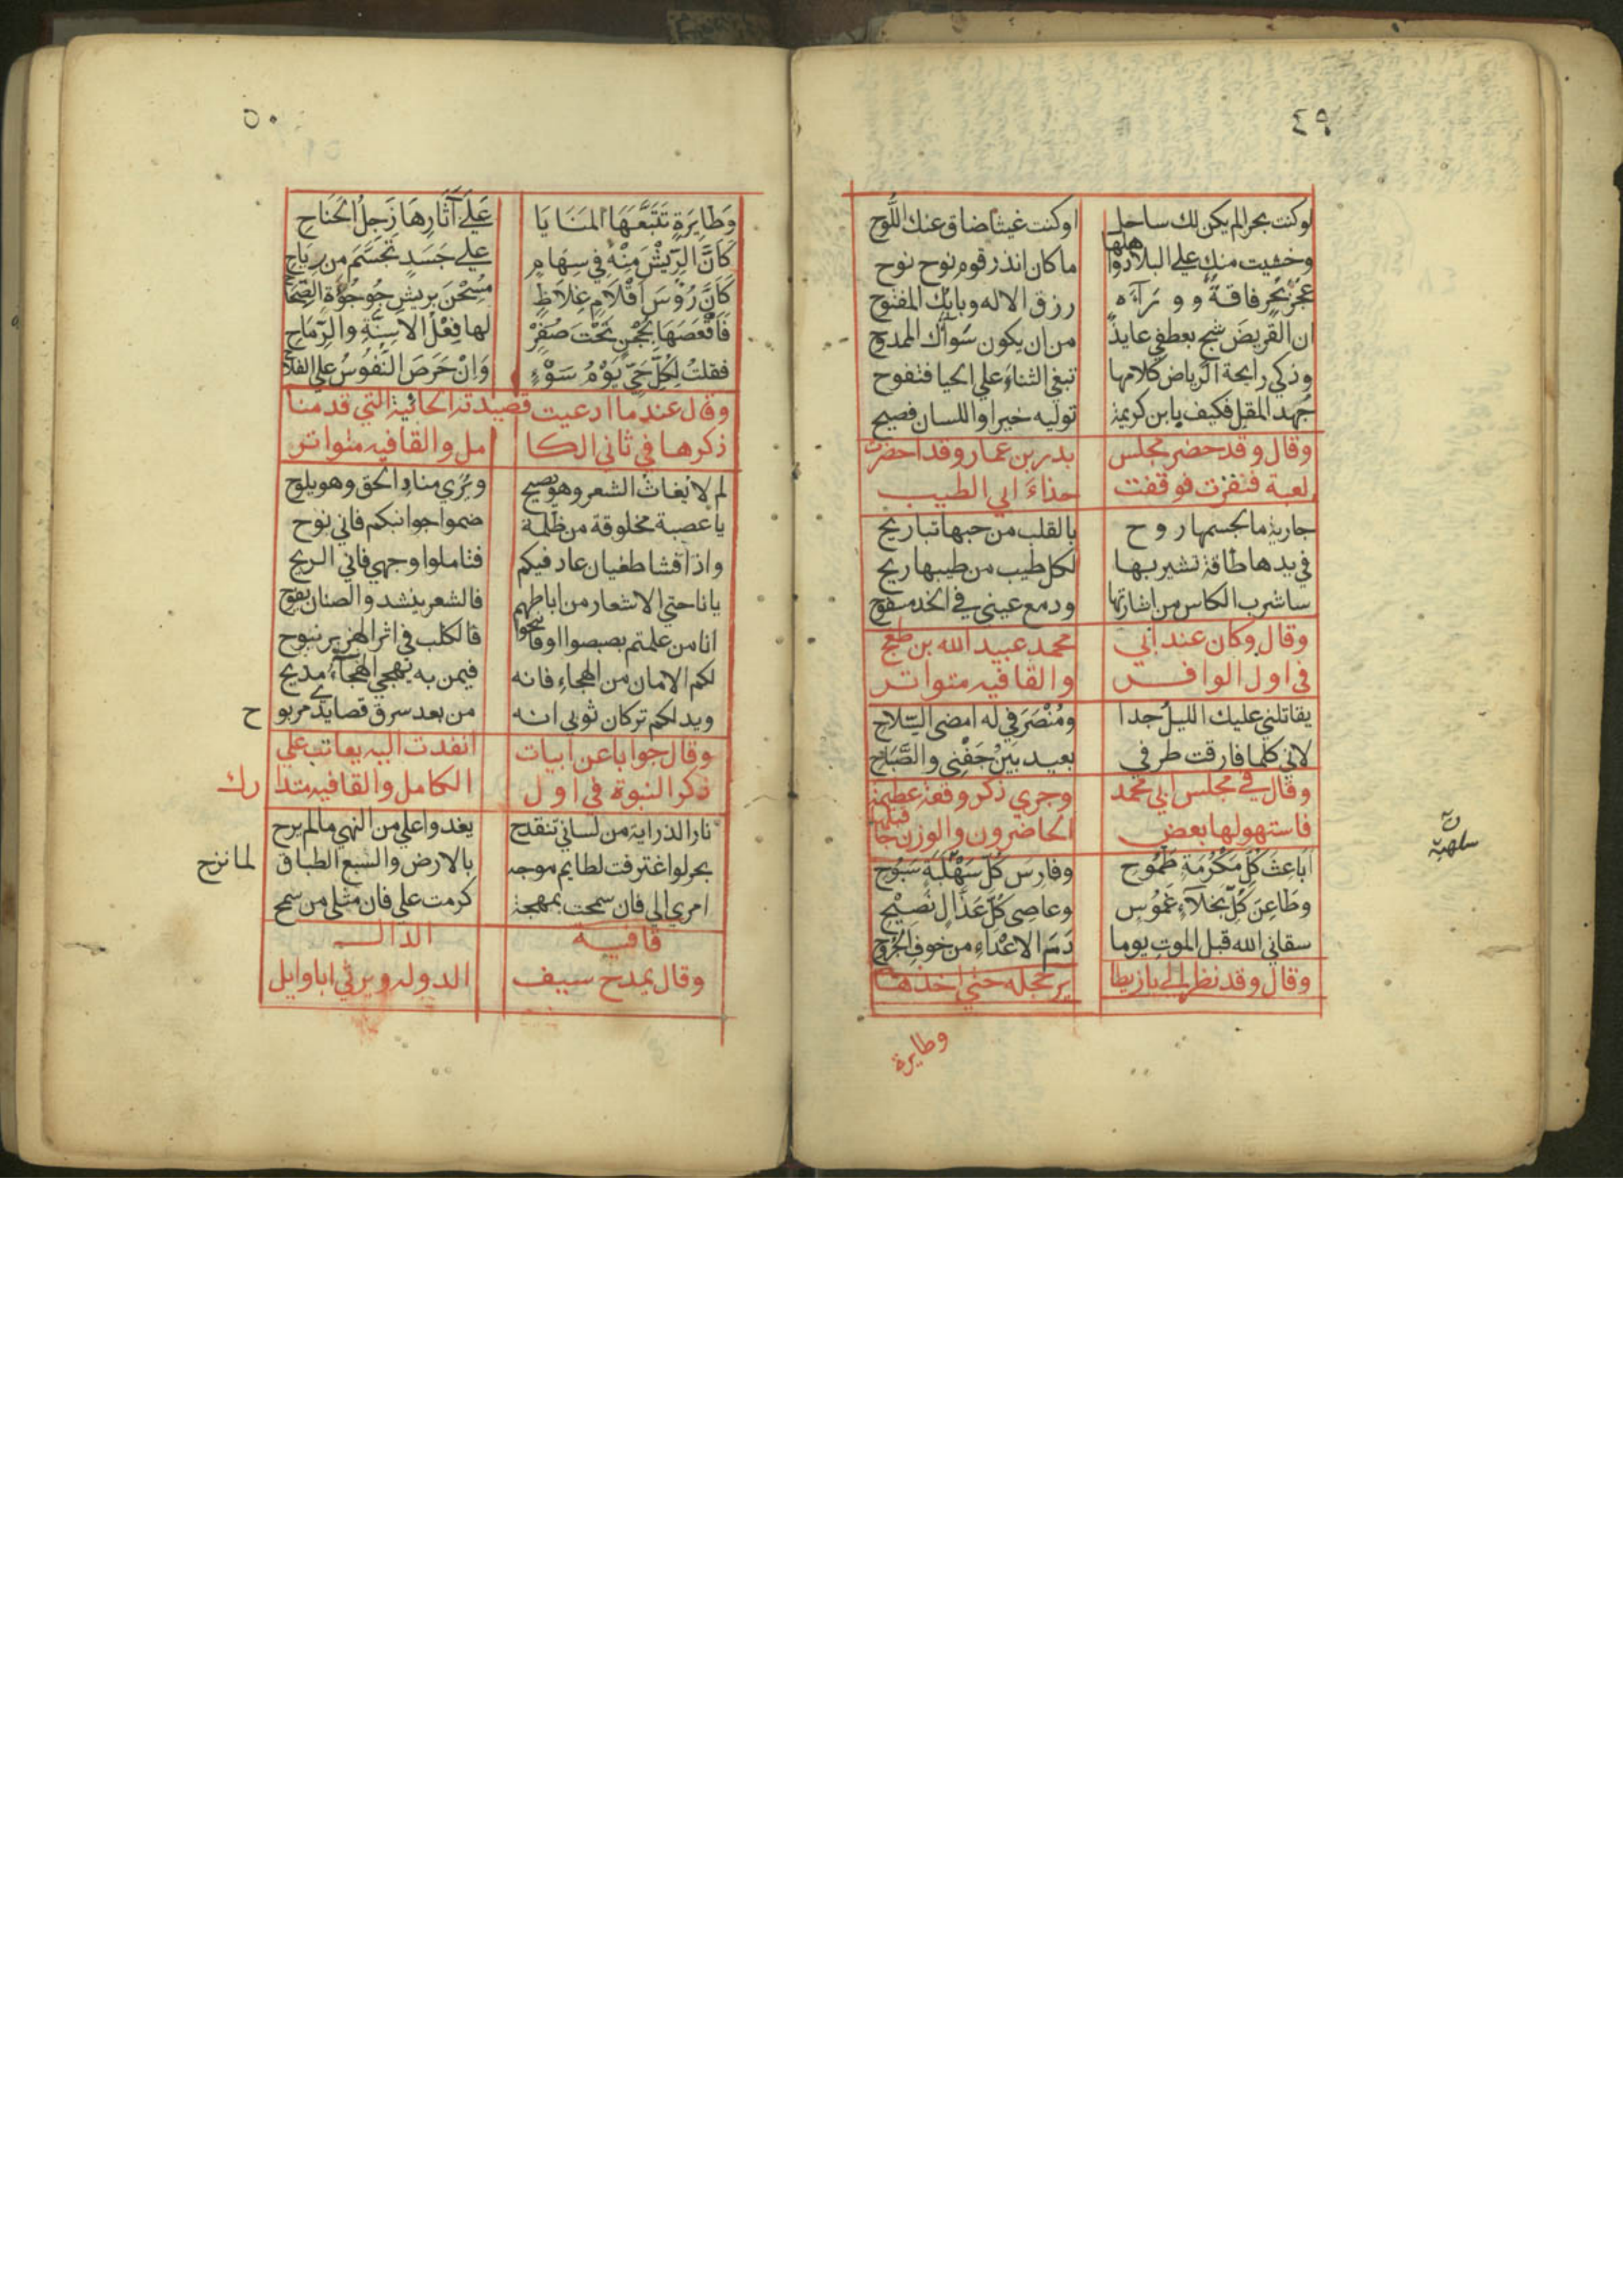 ٤٩
لوكنت بحرالم يكن لك ساحل اوكنت غيثا ضاق عنك اللوح
وخشيت منك علي البلاد واهلها ماكان انذر قوم نوح نوح
عجز بحر فاقة و وراءه رزق الاله وبابك المفتوح
ان القريض شج بعطفي عايذ من ان يكون سواك الممدوح
وذكي رايحة الرياض كلامها تبغي الثناء علي الحيا فتفوح
جهد المقل فكيف بابن كريمة توليه خيرا واللسان فصيح
وقال وقد حضر مجلس بدر بن عمار وقد احضرت
لعبة فنفرت فوقفت حذاء ابي الطيب
جارية ما لجسمها روح بالقلب من حبها تباريح
في يدها طاقة تشير بها لكل طيب من طيبها ريح
ساشرب الكاس من اشارتها ودمع عيني في الخد مسفوح
وقال وكان عند ابي محمد عبيد الله بن طغج
في اول الوافر والقافيه متواتر
يقاتلني عليك الليل جدا ومنصرفي له امضي السلاح
لاني كلما فارقت طرفي بعيد بين جفني والصباح
وقال في مجلس ابي محمد وجري ذكر وقعة عظيمة
فاستهولها بعض الحاضرون والوزن كما قبلها
اباعث كل مكرمة طموح وفارس كل سهلبة سبوح
وطاعن كل نجلاء غموس وعاصي كل عذال نصيح
سقاني الله قبل الموت يوما دم الاعداء من خوف الجروح
وقال وقد نظر الي باز يطا ير حجله حتي اخذها
ن
سلهبة
وطايرة
٥٠
وَطَايِرَةٍ تَتَبَّعَهَا المَنَايَا عَلَي آثَارِهَا زَجِلُ الجَنَاحِ
كَاَنَّ الرِّيْشَ مِنْهُ في سِهَامٍ علي جَسَدٍ تَجَسَّمَ من رِيَاحِ
كَاَنَّ رُؤْسَ اقْلَامٍ غِلَاظٍ مُسِحْنَ بريشِ جُوجُؤهِ الصحاح
فَاَقْعَصَهَا بحُجْنٍ تَحْتَ صُفْرٍ لها فِعْلُ الاَسِنَّةِ والرِّمَاحِ
فقلتُ لِكُلِّ حَيٍّ يَوْمُ سَوْءٍ وَاِنْ حَرَصَ النُّفُوسُ علي الفلاح
وقال عندما ادعيت قصيدته الحائية التي قدمنا
ذكرها في ثاني الكا مل والقافيه متواتر
لم لا يغاث الشعر وهو يصيح ويري منار الحق وهو يلوح
يا عصبة مخلوقة من ظلمة ضموا جوانبكم فاني نوح
واذا فشا طغيان عاد فيكم فتاملوا وجهي فاني الريح
يا ناحتي الاشعار من اباطهم فالشعر ينشد والصنان يفوح
انا من علمتم بصبصوا او فانبحوا فالكلب في اثر الهزبر نبوح
لكم الامان من الهجاء فانه فيمن به يهجي الهجاء مديح
ويد لكم تركان ثوبي انه من بعد سرق قصايدي مربوح
وقال جوابا عن ابيات انفدت اليه يعاتب علي
ذكر النبوة في اول الكامل والقافيه متدارك
نار الدراية من لساني تنقدح يغدوا علي من النهي مالم يرح
بحر لو اغترفت لطايم موجه بالارض والسبع الطباق لما نزح
امري الي فان سمحت بمهجة كرمت علي فان مثلي من سمح
قافية الدال
وقال يمدح سيف الدوله ويرثي ابا وايل